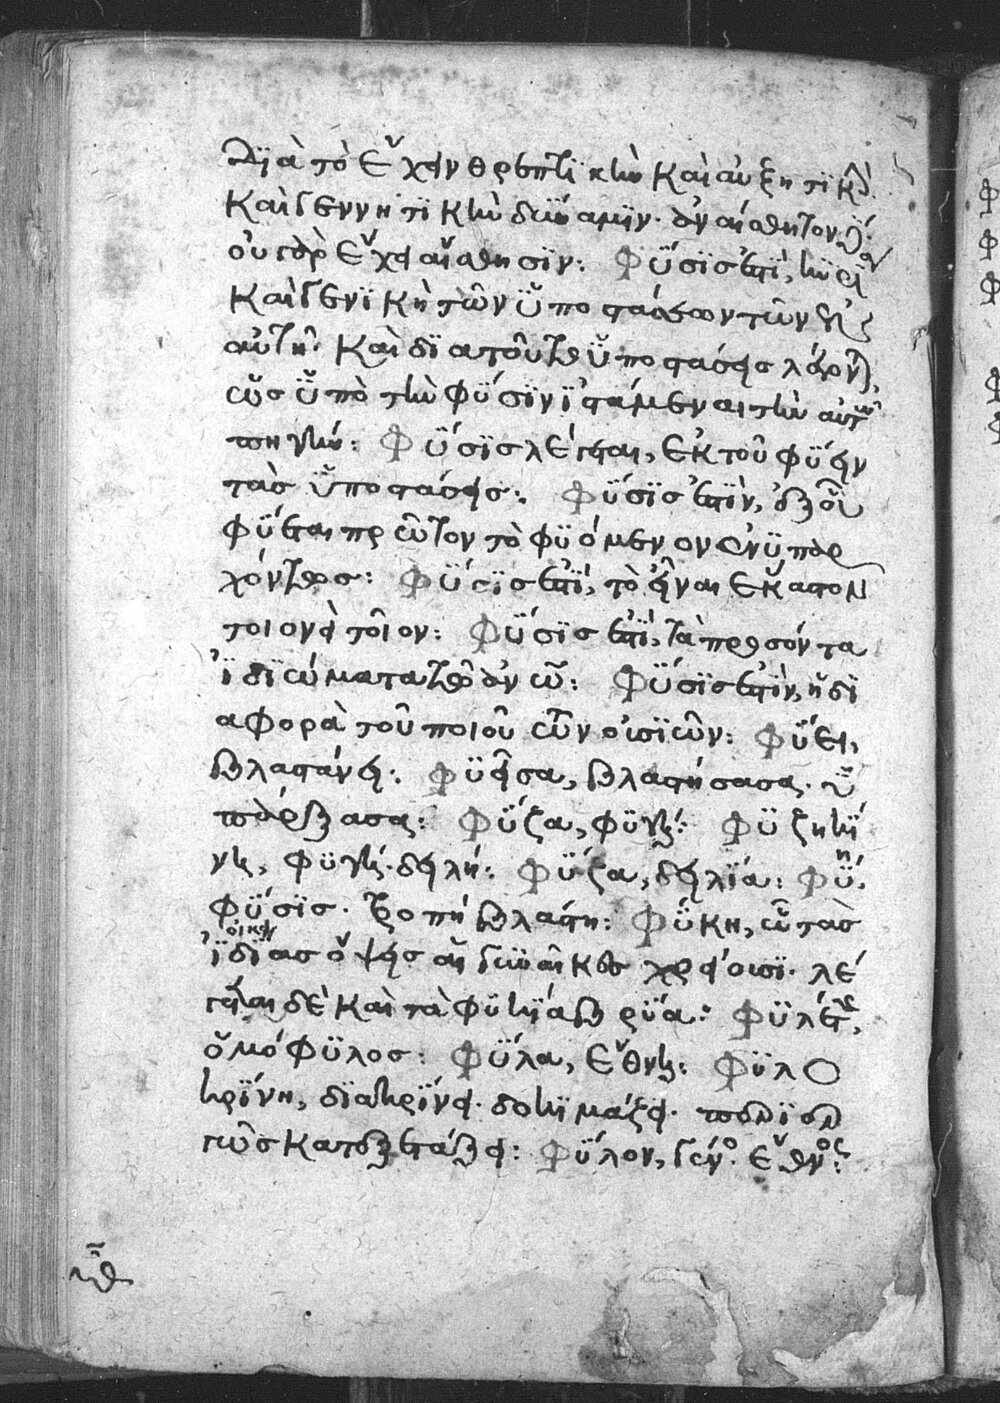 διὰ τὸ ἔχειν θρεπτικὴν καὶ αὐξητικὴν
καὶ γεννητικὴν δύναμιν· ἀναίσθητον δέ·
οὐ γὰρ ἔχει αἴσθησιν: Φύσις ἐστὶ,
καὶ γενικὴ τῶν ὑποστάσεων τῶν
αὐτὴν· καὶ διὰ τοῦτο ὑποστάσεις λέγον),
ὡς ὑπὸ τὴν φύσιν ἱστάμεναι τὴν αὐτῶν
πηγήν: Φύσις λέγεται, ἐκ τοῦ φύειν
τὰς ὑποστάσεις: Φύσις ἐστὶν, ἐξ οὗ
φύεται πρῶτον τὸ φυόμενον ἐνυπάρ
χοντος: Φύσις ἐστὶ, τὸ εἶναι ἕκαστον
ποιον ἢ τοῖον: Φύσις ἐστὶ, τὰ προσόντα
ἰδιώματα τῷ ὄντι: Φύσις ἐστὶν, ἡ δι
αφορὰ τοῦ ποιοῦ τῶν οὐσιῶν: Φύει,
βλαστάνει: Φυεῖσα, βλαστήσασα· ὑ
πάρξασα: Φύζα, φυγή: Φυζηκι
νη, φυγή· δειλή: Φύζα, δειλία: Φύη,
φύσις· τροπὴ βλάστη: Φύκη, ᾧ τὰς
ἰδίας ὄψεις αἱ γυναῖκες χρίουσι· λέ
γεται δὲ καὶ τὰ φυκία βρύα: Φυλέτης,
ὁμόφυλος: Φύλα, ἔθνη: Φυλο
κρίνη, διακρίνει· δοκιμάζει·
κατεξετάζει: Φύλον, γένος· ἔθνος: